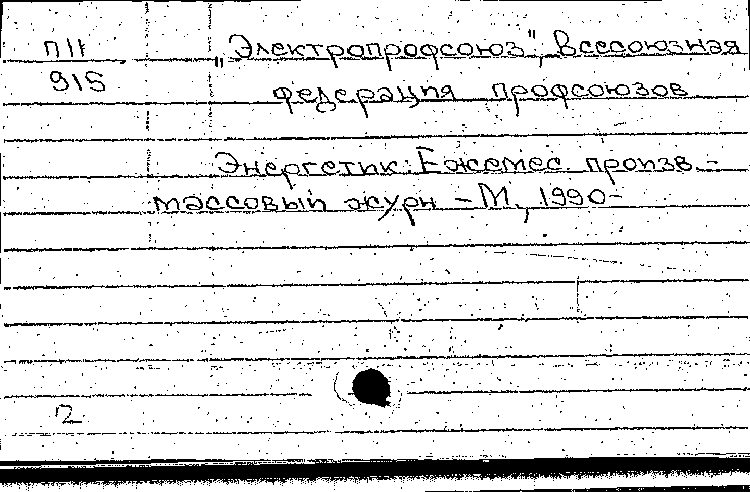 П11
915
"Электропрофсоюз", Всесоюзная
федерация профсоюзов
Энергетик: Ежемес. произв.-
массовый журн – М., 1990-
2